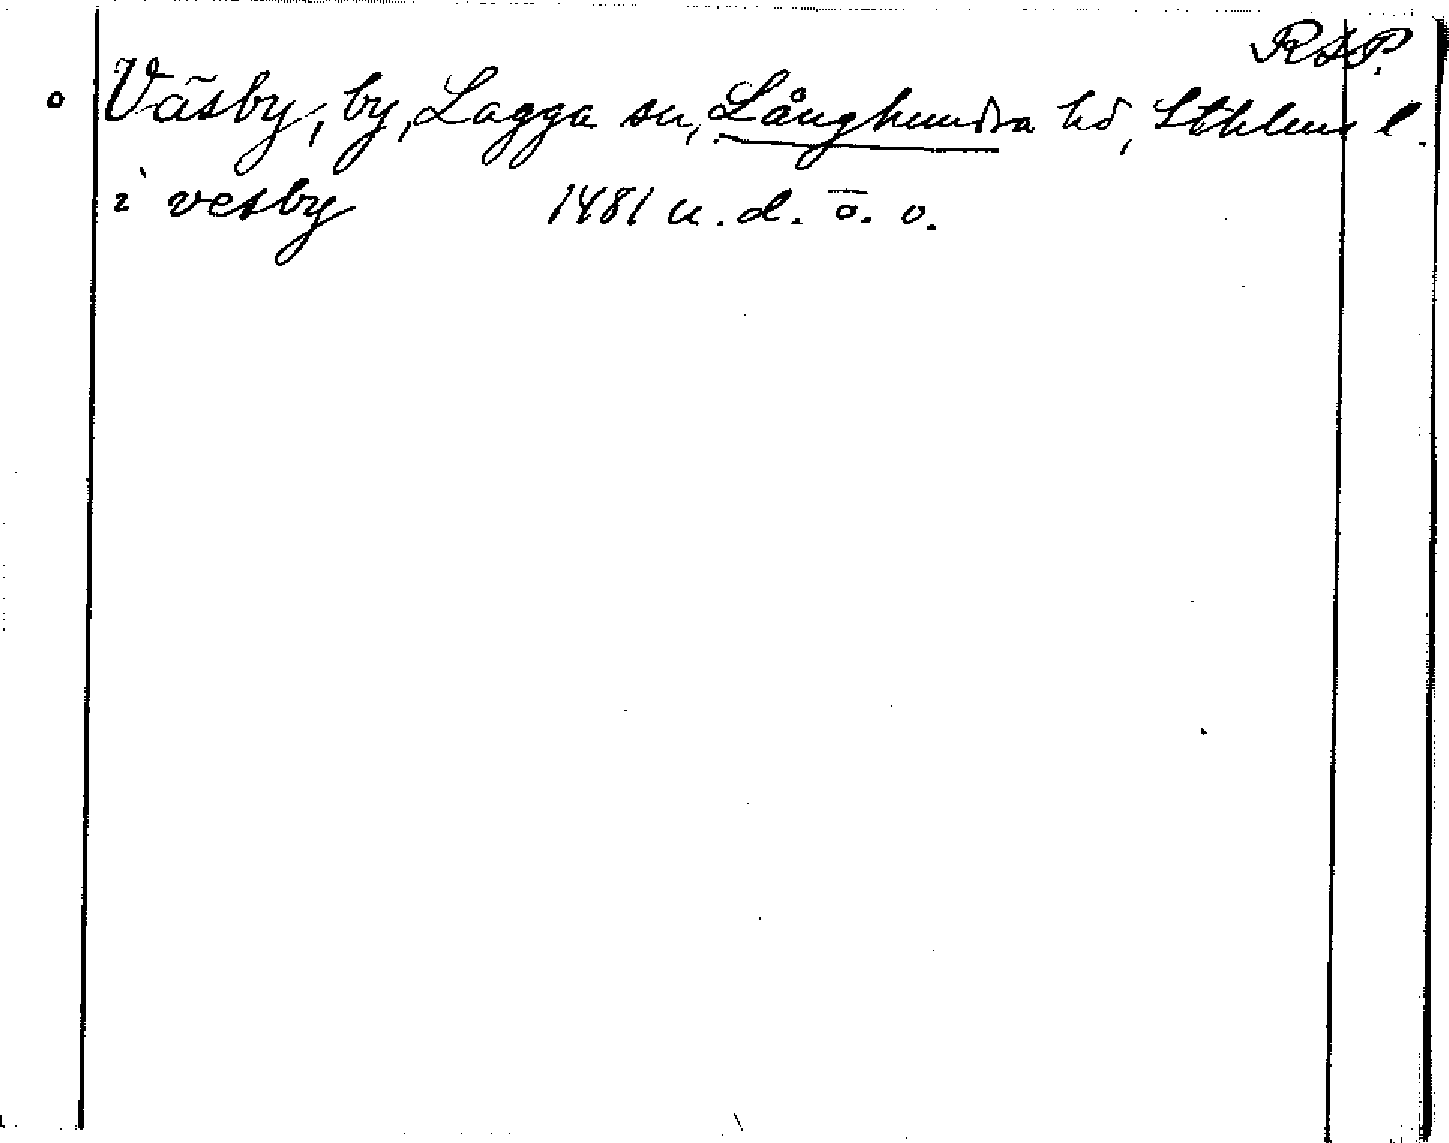 RAP.
o Väsby, by, Lagga sn, Långhundra hd, Sthlms l.
i vesby 1481 u.d. ö.o.